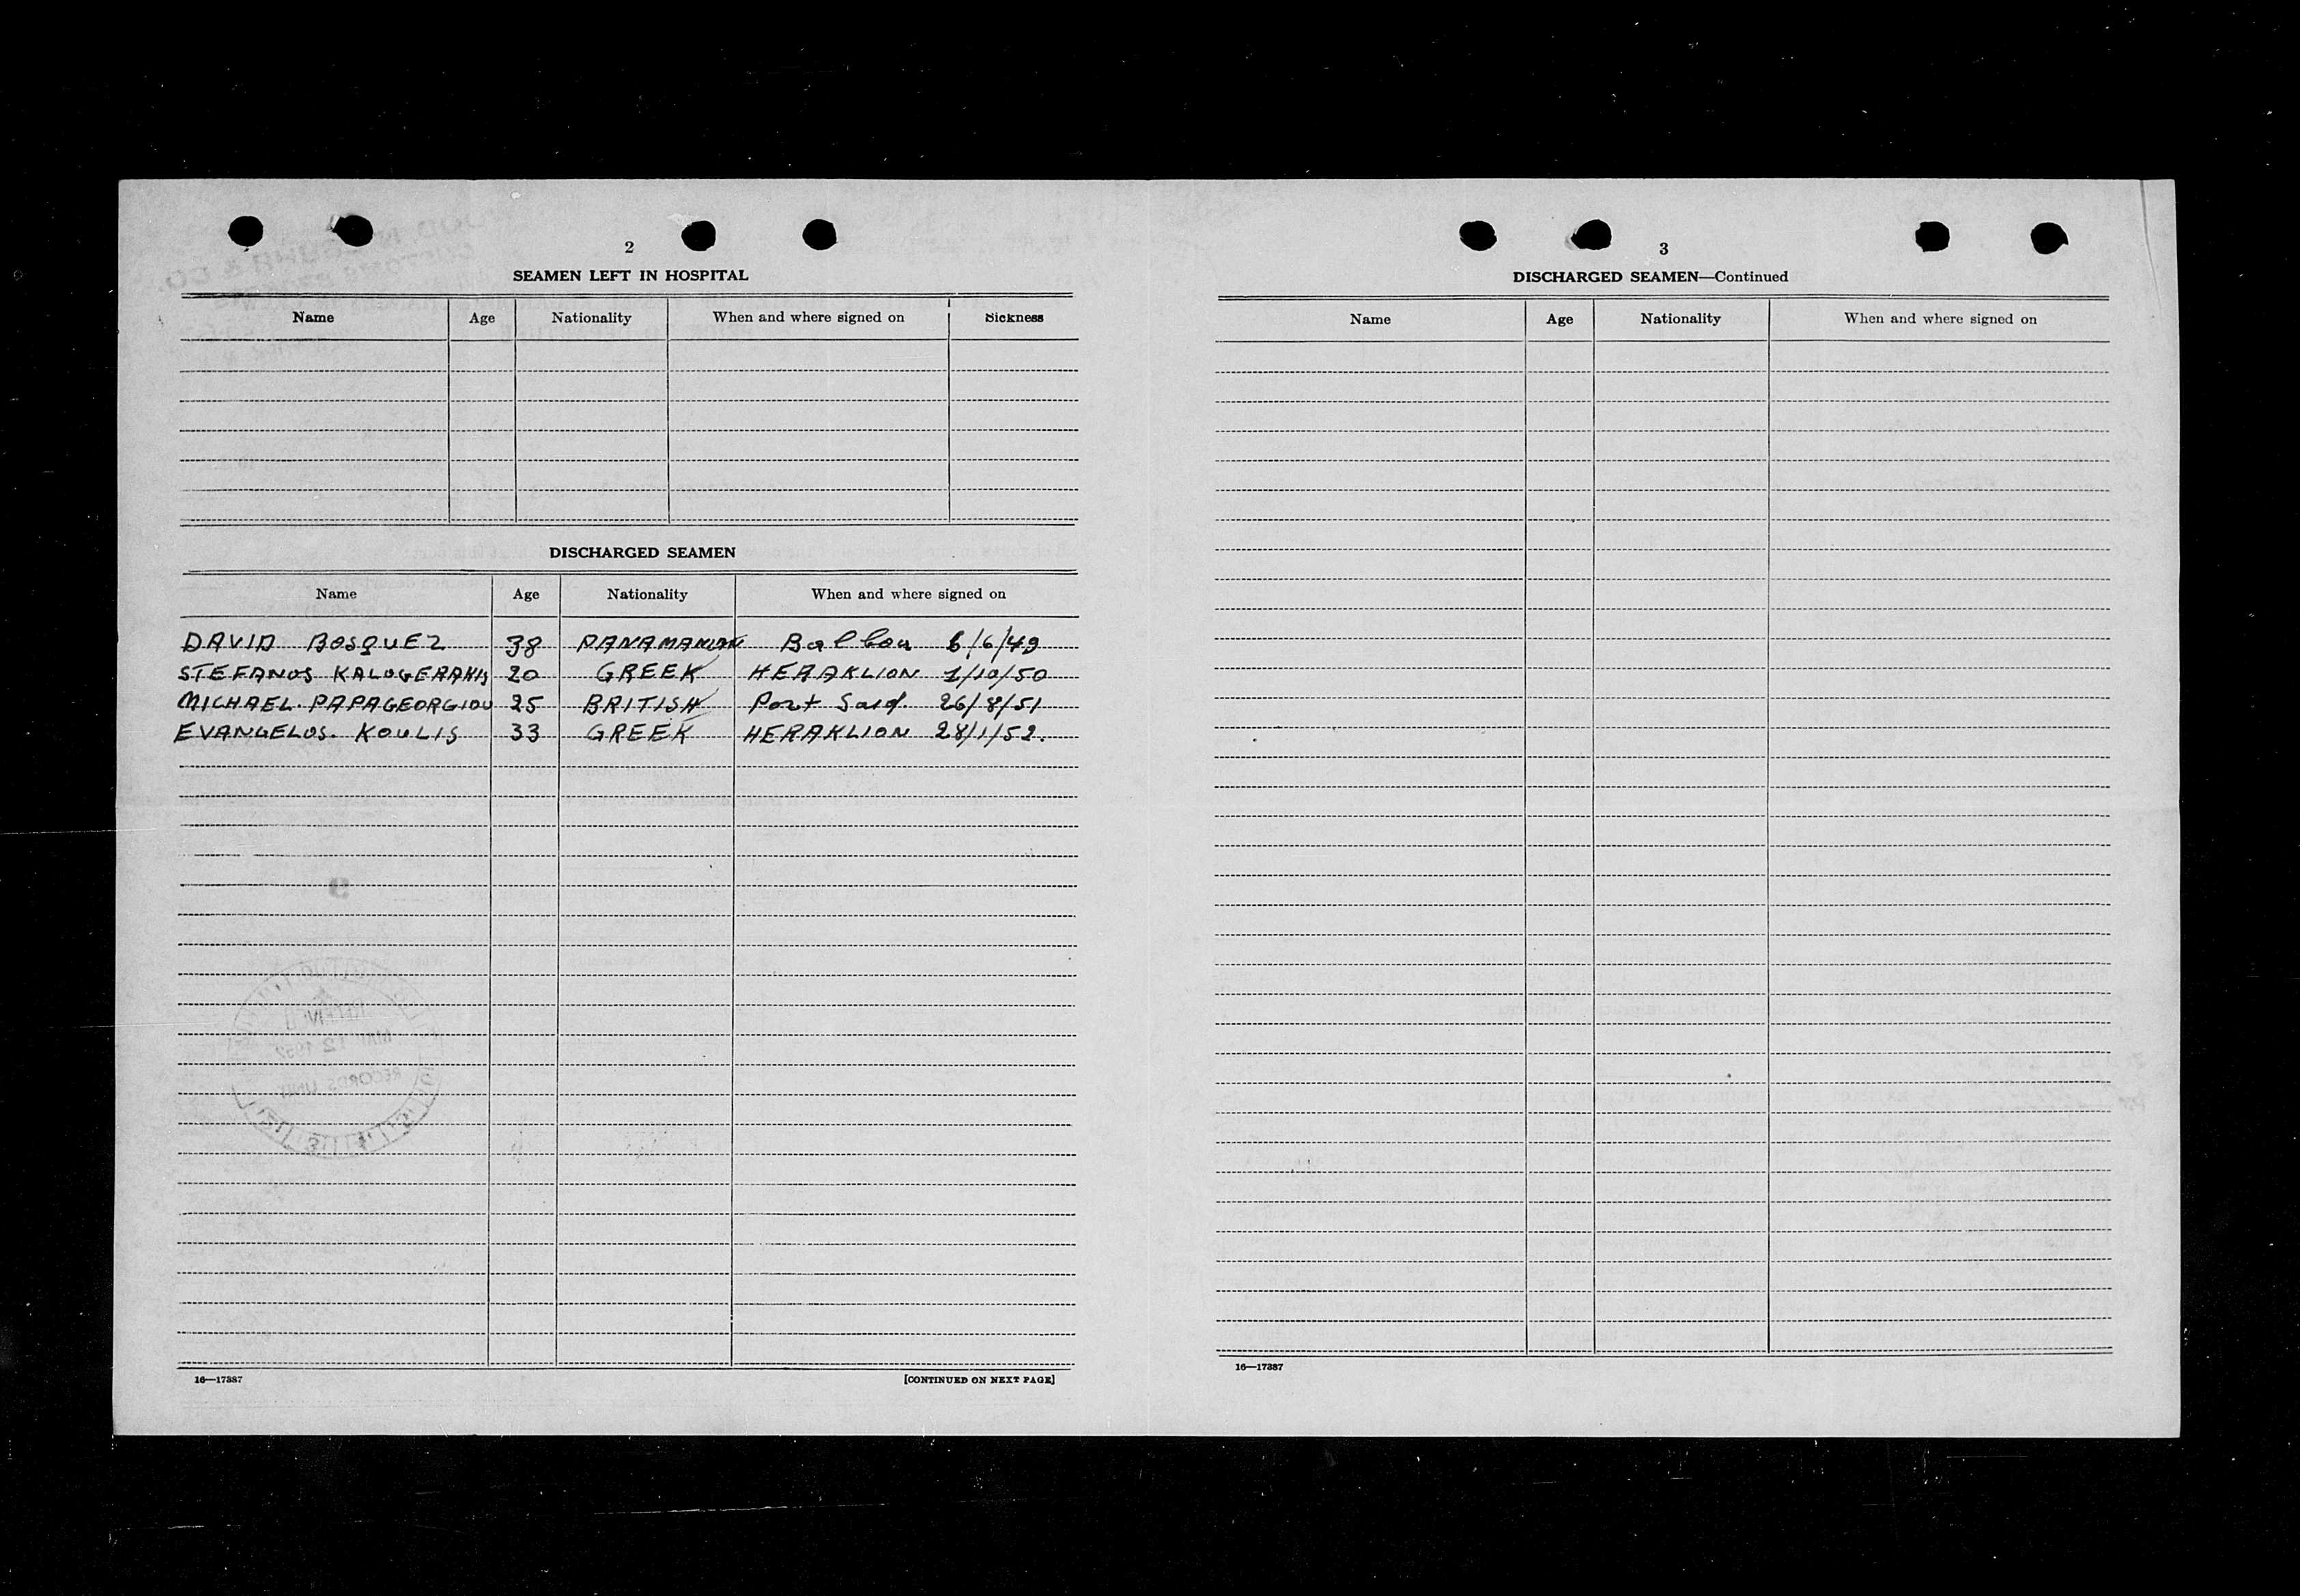 2
SEAMEN LEFT IN HOSPITAL
Name Age Nationality When and where signed on Sickness
DISCHARGED SEAMEN
Name Age Nationality When and where signed on
DAVID BOSQUEZ 38 PANAMANIAN Balboa 6/6/49
STEFANOS KALOGERAKIS 20 GREEK HERAKLION 1/10/50
MICHAEL. PAPAGEORGIOU 25 BRITISH Port Said. 26/8/51
EVANGELOS. KOULIS 33 GREEK HERAKLION 28/1/52.
16—17387 [CONTINUED ON NEXT PAGE]
3
DISCHARGED SEAMEN—Continued
Name Age Nationality When and where signed on
16—17387